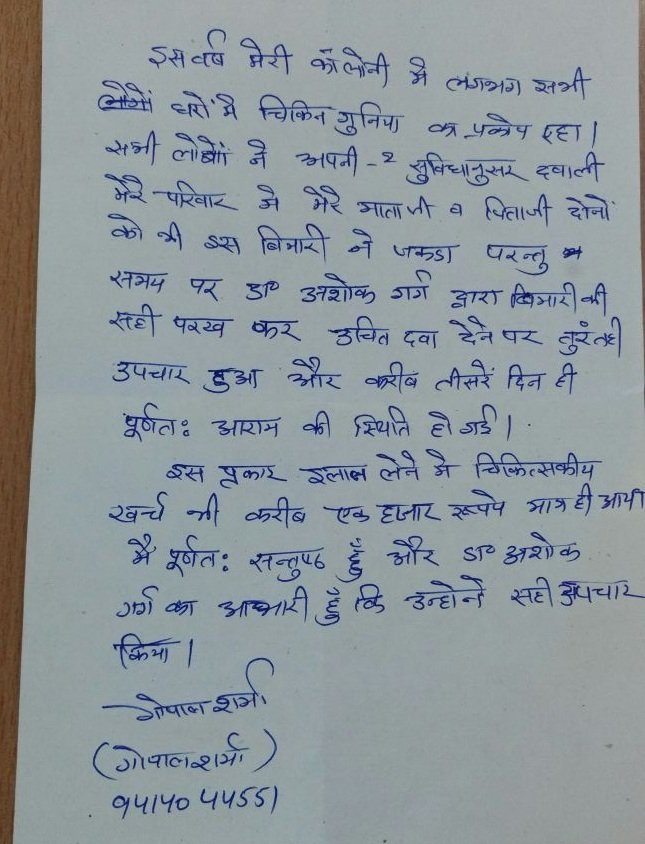 इस वर्ष मेरी कॉलोनी मे लगभग सभी
घरों मे चिकिन गुनिया का प्रकोप रहा।
सभी लोगों ने अपनी -२ सुविधानुसर दवाली
मेरे परिवार मे मेरे माताजी व पिताजी दोनों
को भी इस बिमारी ने जकडा परन्तु
समय पर डा० अशोक गर्ग द्वारा बिमारी की
सही परख कर उचित दवा देने पर तुरंतही
उपचार हुआ और करीब तीसरें दिन ही
पूर्णतः आराम की स्थिति हो गई।
इस प्रकार इलाज लेने मे चिकित्सकीय
खर्च भी करीब एक हजार रूपये मात्र ही आया
मै पूर्णतः सन्तुष्ठ हूँ और डा० अशोक
गर्ग का आभारी हूँ कि उन्होने सही उपचार
किया।
गोपाल शर्मा
(गोपाल शर्मा)
9414044551